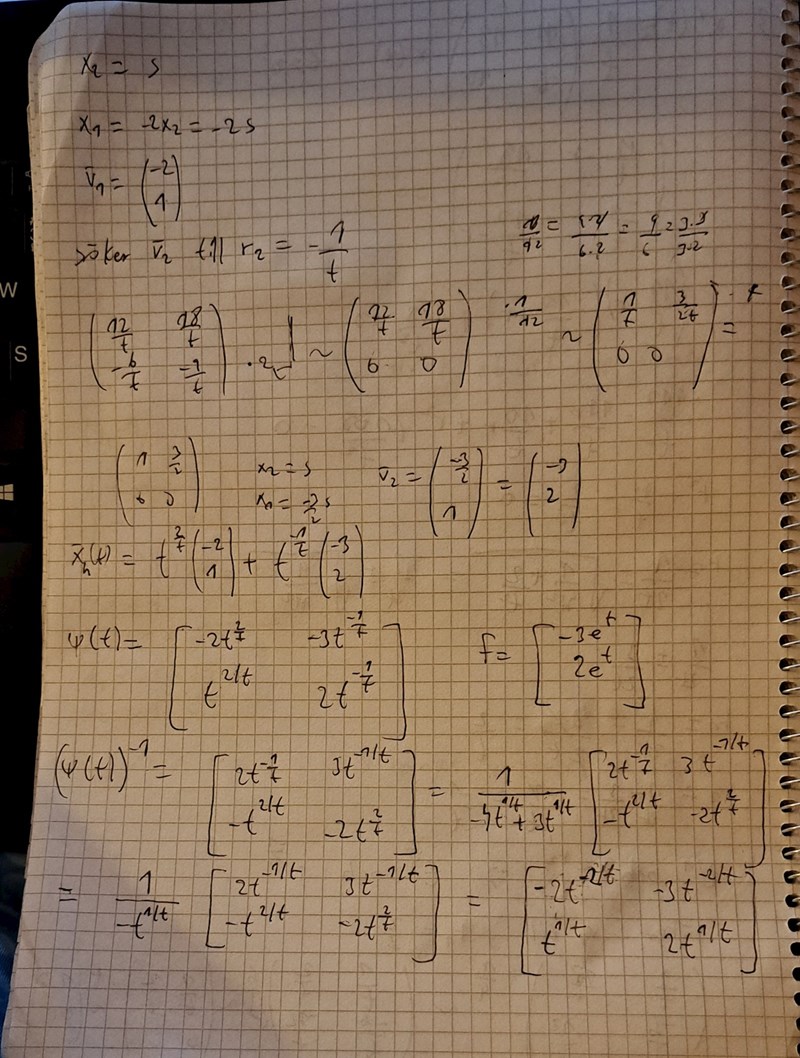 x₂ = s
x₁ = -2x₂ = -2s
v̄₁ = (-2; 1)
söker v̄₂ till r₂ = -1/t
= 9/6 = 3·3/3·2
(12/t 18/t; -6/t -9/t) ~ (12/t 18/t; 0 0) ·1/12 ~ (1/t 3/2t; 0 0) · t =
(1 3/2; 0 0) x₂ = s x₁ = -3/2 s v̄₂ = (-3/2; 1) = (-3; 2)
x̄ₕ(t) = t^(2/t) (-2; 1) + t^(-1/t) (-3; 2)
ψ(t) = [-2t^(2/t) -3t^(-1/t); t^(2/t) 2t^(-1/t)] f = [-3e^t; 2e^t]
(ψ(t))^(-1) = [2t^(-1/t) 3t^(-1/t); -t^(2/t) -2t^(2/t)] = 1/(-4t^(1/t) + 3t^(1/t)) [2t^(-1/t) 3t^(-1/t); -t^(2/t) -2t^(2/t)]
= 1/(-t^(1/t)) [2t^(-1/t) 3t^(-1/t); -t^(2/t) -2t^(2/t)] = [-2t^(-2/t) -3t^(-2/t); t^(1/t) 2t^(1/t)]
W
S